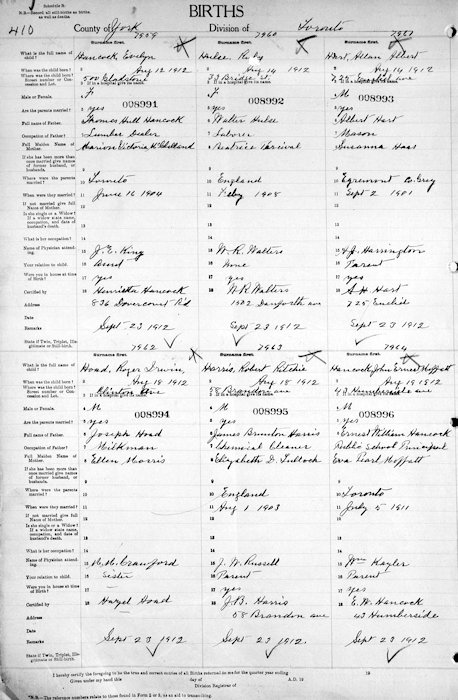 Schedule B.
N.B.—Record all still-births as births, as well as deaths.
BIRTHS
410
County of York
Division of Toronto
7959 7960 7961
Surname first. Surname first. Surname first.
What is the full name of child? Hancock, Evelyn Hulse, Ruby Hart, Allan Albert
When was the child born? Aug 12 1912 Aug 14 1912 Aug 14 1912
Where was the child born? Street number or Concession and Lot. 500 Gladstone 33 Bridge St
If a hospital give its name.
008991 008992 008993
Male or Female. F F M
Are the parents married? yes yes yes
Full name of Father. Thomas Hull Hancock Walter Hulse Albert Hart
Occupation of Father? Lumber Dealer Laborer Mason
Full Maiden Name of Mother. Beatrice Percival Susanna Haas
If she has been more than once married give name of former husband, or husbands.
Where were the parents married? Toronto England Egremont Co Grey
When were they married? June 16 1904 Feby 1908 Sept 2 1901
If not married give full Name of Mother.
Is she single or a Widow? If a widow state name, occupation, and date of husband's death.
What is her occupation?
Name of Physician attending. J. E. King W. R. Walters A. J. Harrington
Your relation to child. Aunt None Parent
Were you in house at time of Birth? yes yes yes
Certified by Henrietta Hancock W R Walters A H Hart
Address 836 Dovercourt Rd 1902 Danforth ave 725 Euclid
Date Sept 23 1912 Sept 23 1912 Sept 23 1912
Remarks
State if Twin, Triplet, Illegitimate or Still-birth.
7962 7963 7964
Surname first. Surname first. Surname first.
What is the full name of child? Hoad, Roger Irwin Harris, Robert Ritchie Hancock, John Ernest Moffatt
When was the child born? Aug 18 1912 Aug 18 1912 Aug 19 1912
Where was the child born? Street number or Concession and Lot. Clinton 58 Brandon ave 43 Humberside ave
If a hospital give its name.
008994 008995 008996
Male or Female. M M M
Are the parents married? yes yes yes
Full name of Father. Joseph Hoad James Brunton Harris Ernest William Hancock
Occupation of Father? Milkman Chemical Cleaner Public School Principal
Full Maiden Name of Mother. Ellen Morris Elizabeth D. Tullock Eva Pearl Moffatt
If she has been more than once married give name of former husband, or husbands.
Where were the parents married? England Toronto
When were they married? Aug 1 1903 July 5 1911
If not married give full Name of Mother.
Is she single or a Widow? If a widow state name, occupation and date of husband's death.
What is her occupation?
Name of Physician attending. Crawford J. W. Russell Wm Kayler
Your relation to child. Sister Parent Parent
Were you in house at time of Birth? yes yes
Certified by Hazel Hoad J. B. Harris E. W. Hancock
Address 58 Brandon ave 43 Humberside
Date Sept 23 1912 Sept 23 1912 Sept 23 1912
Remarks
State if Twin, Triplet, Illegitimate or Still-birth.
I hereby certify the foregoing to be the true and correct entries of all Births returned to me for the quarter year ending 19
Given under my hand this day of A.D. 19
Division Registrar of
*N.B.—The reference numbers relate to those found in Form 2 or 3, as an aid to transcribing.